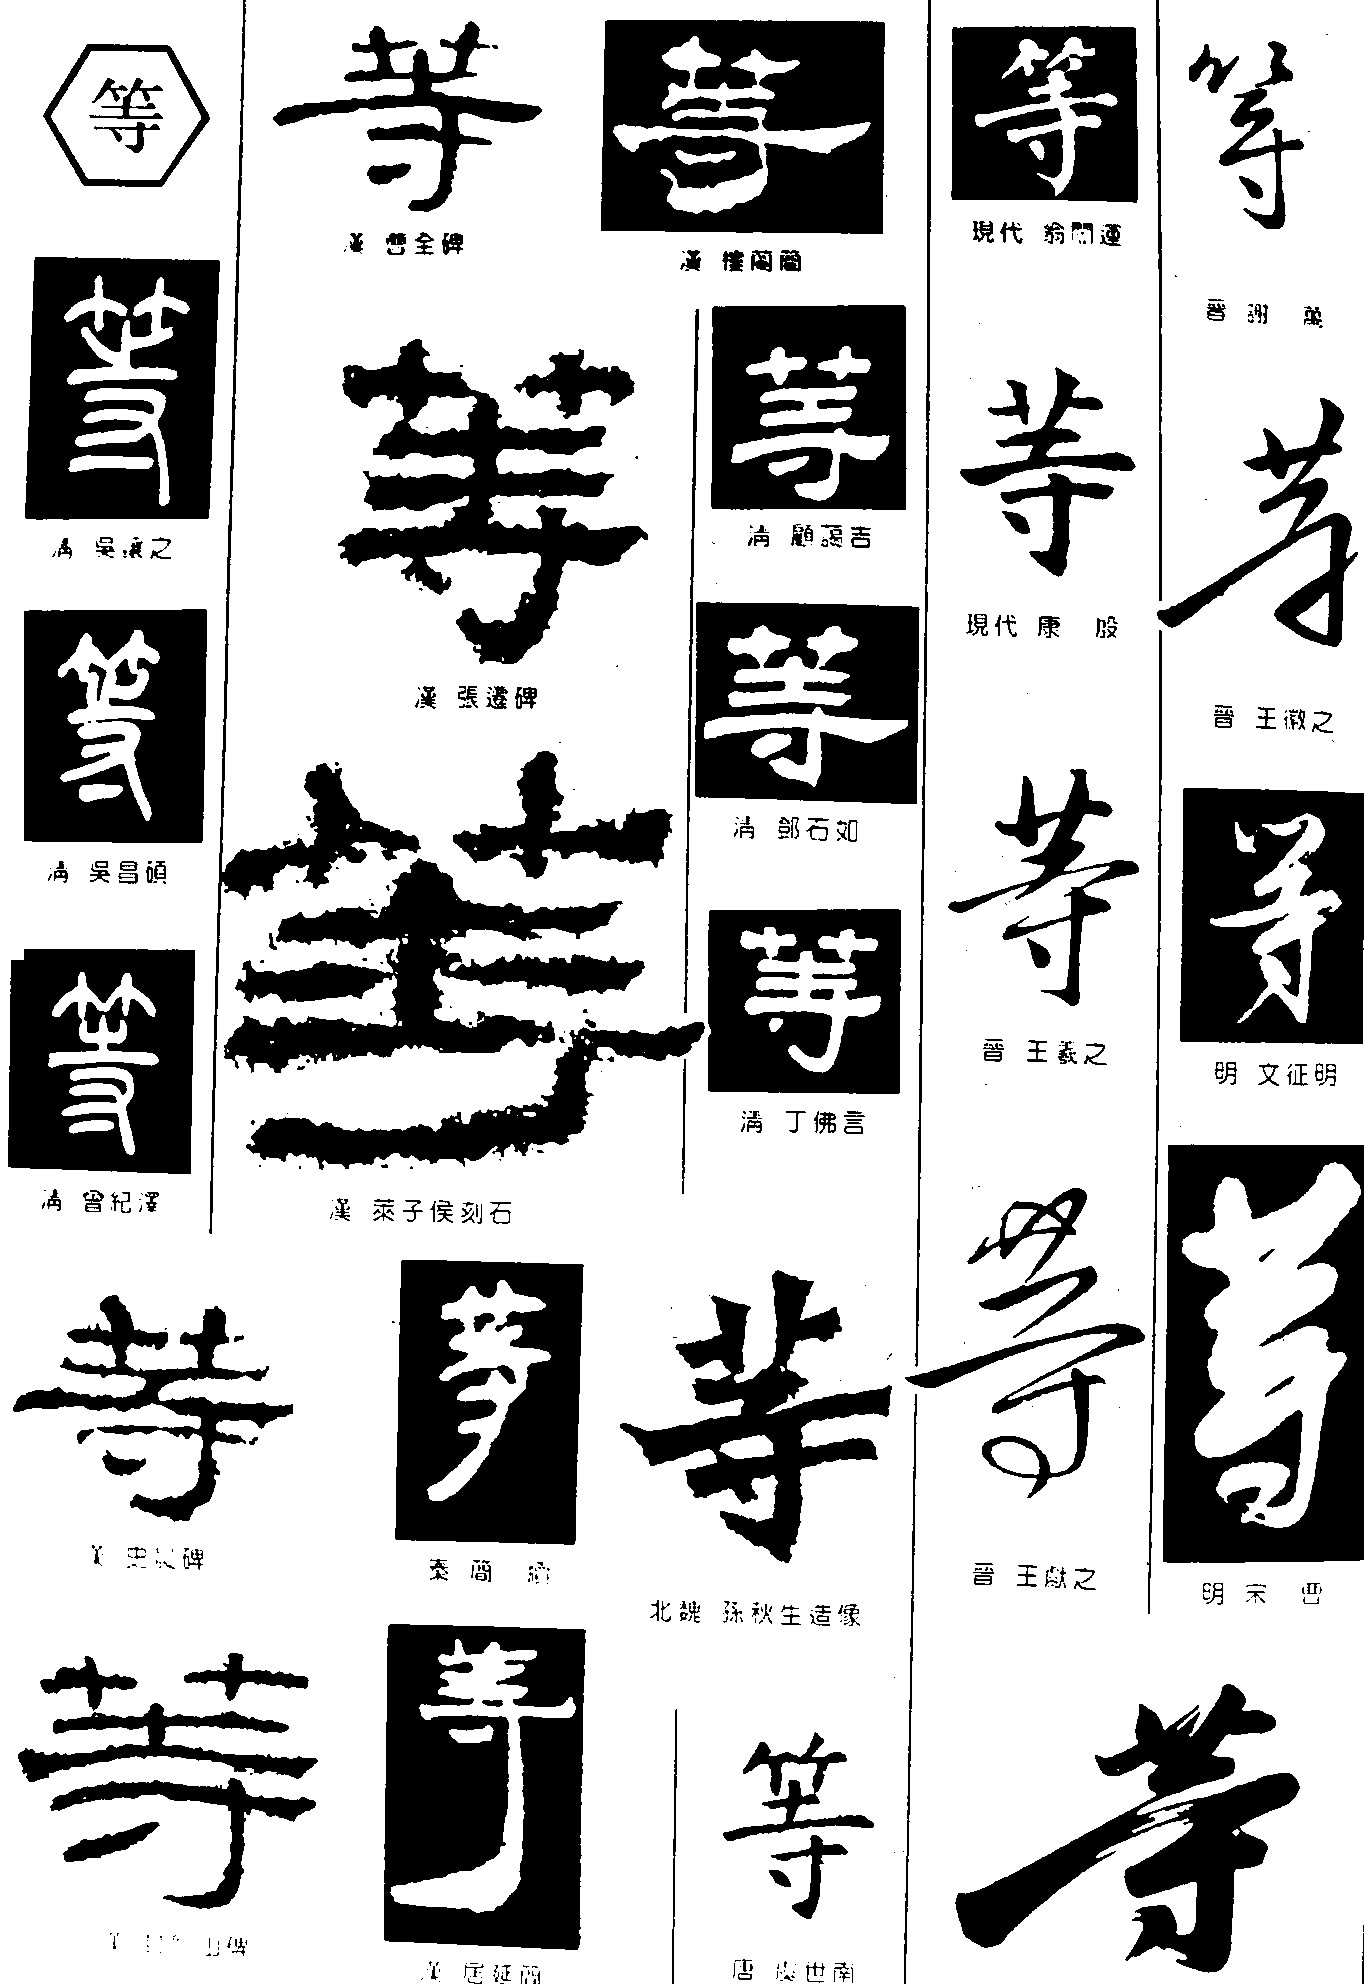 等
等
清 吳讓之
等
清 吳昌碩
等
清 曾紀澤
等
漢 曹全碑
等
漢 樓蘭簡
等
漢 張遷碑
等
清 顧藹吉
等
清 鄧石如
等
漢 萊子侯刻石
等
清 丁佛言
等
漢 史晨碑
等
秦簡
等
北魏 孫秋生造像
等
等
漢 居延簡
等
唐 虞世南
等
現代 翁闓運
等
現代 康殷
等
晉 王羲之
等
晉 王獻之
等
晉 謝萬
等
晉 王徽之
等
明 文征明
等
明 宋曹
等